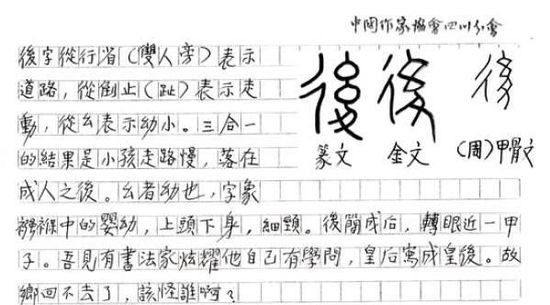 中国作家協會四川分會
後字從行省（雙人旁）表示
道路，從倒止（趾）表示走
動，從幺表示幼小。三合一
的結果是小孩走路慢，落在
成人之後。幺者幼也，字象
襁褓中的嬰幼，上頭下身，細頸。後簡成后，轉眼近一甲
子。吾見有書法家炫耀他自己有學問，皇后寫成皇後。故
鄉回不去了，該怪誰啊？
後 後 後
篆文 金文 （周）甲骨文